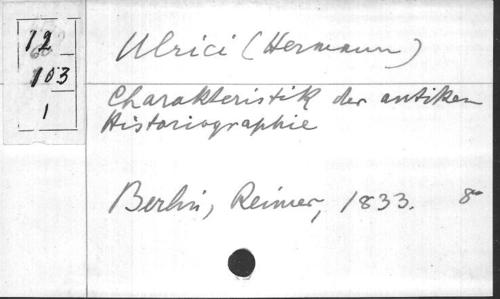 12
103
1
Ulrici (Hermann)
Charakteristik der antiken
Historiographie
Berlin, Reimer, 1833. 8°